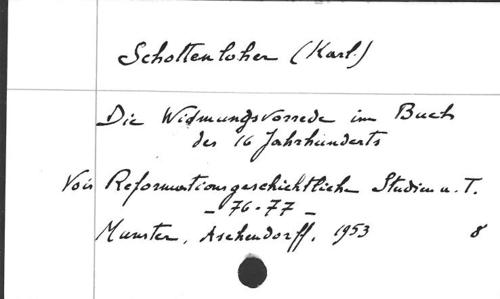 Schottenloher (Karl)
Die Widmungsvorrede im Buch
des 16 Jahrhunderts
Voir Reformationsgeschichtliche Studien u. T.
- 76-77 -
Munster, Aschendorff, 1953 8